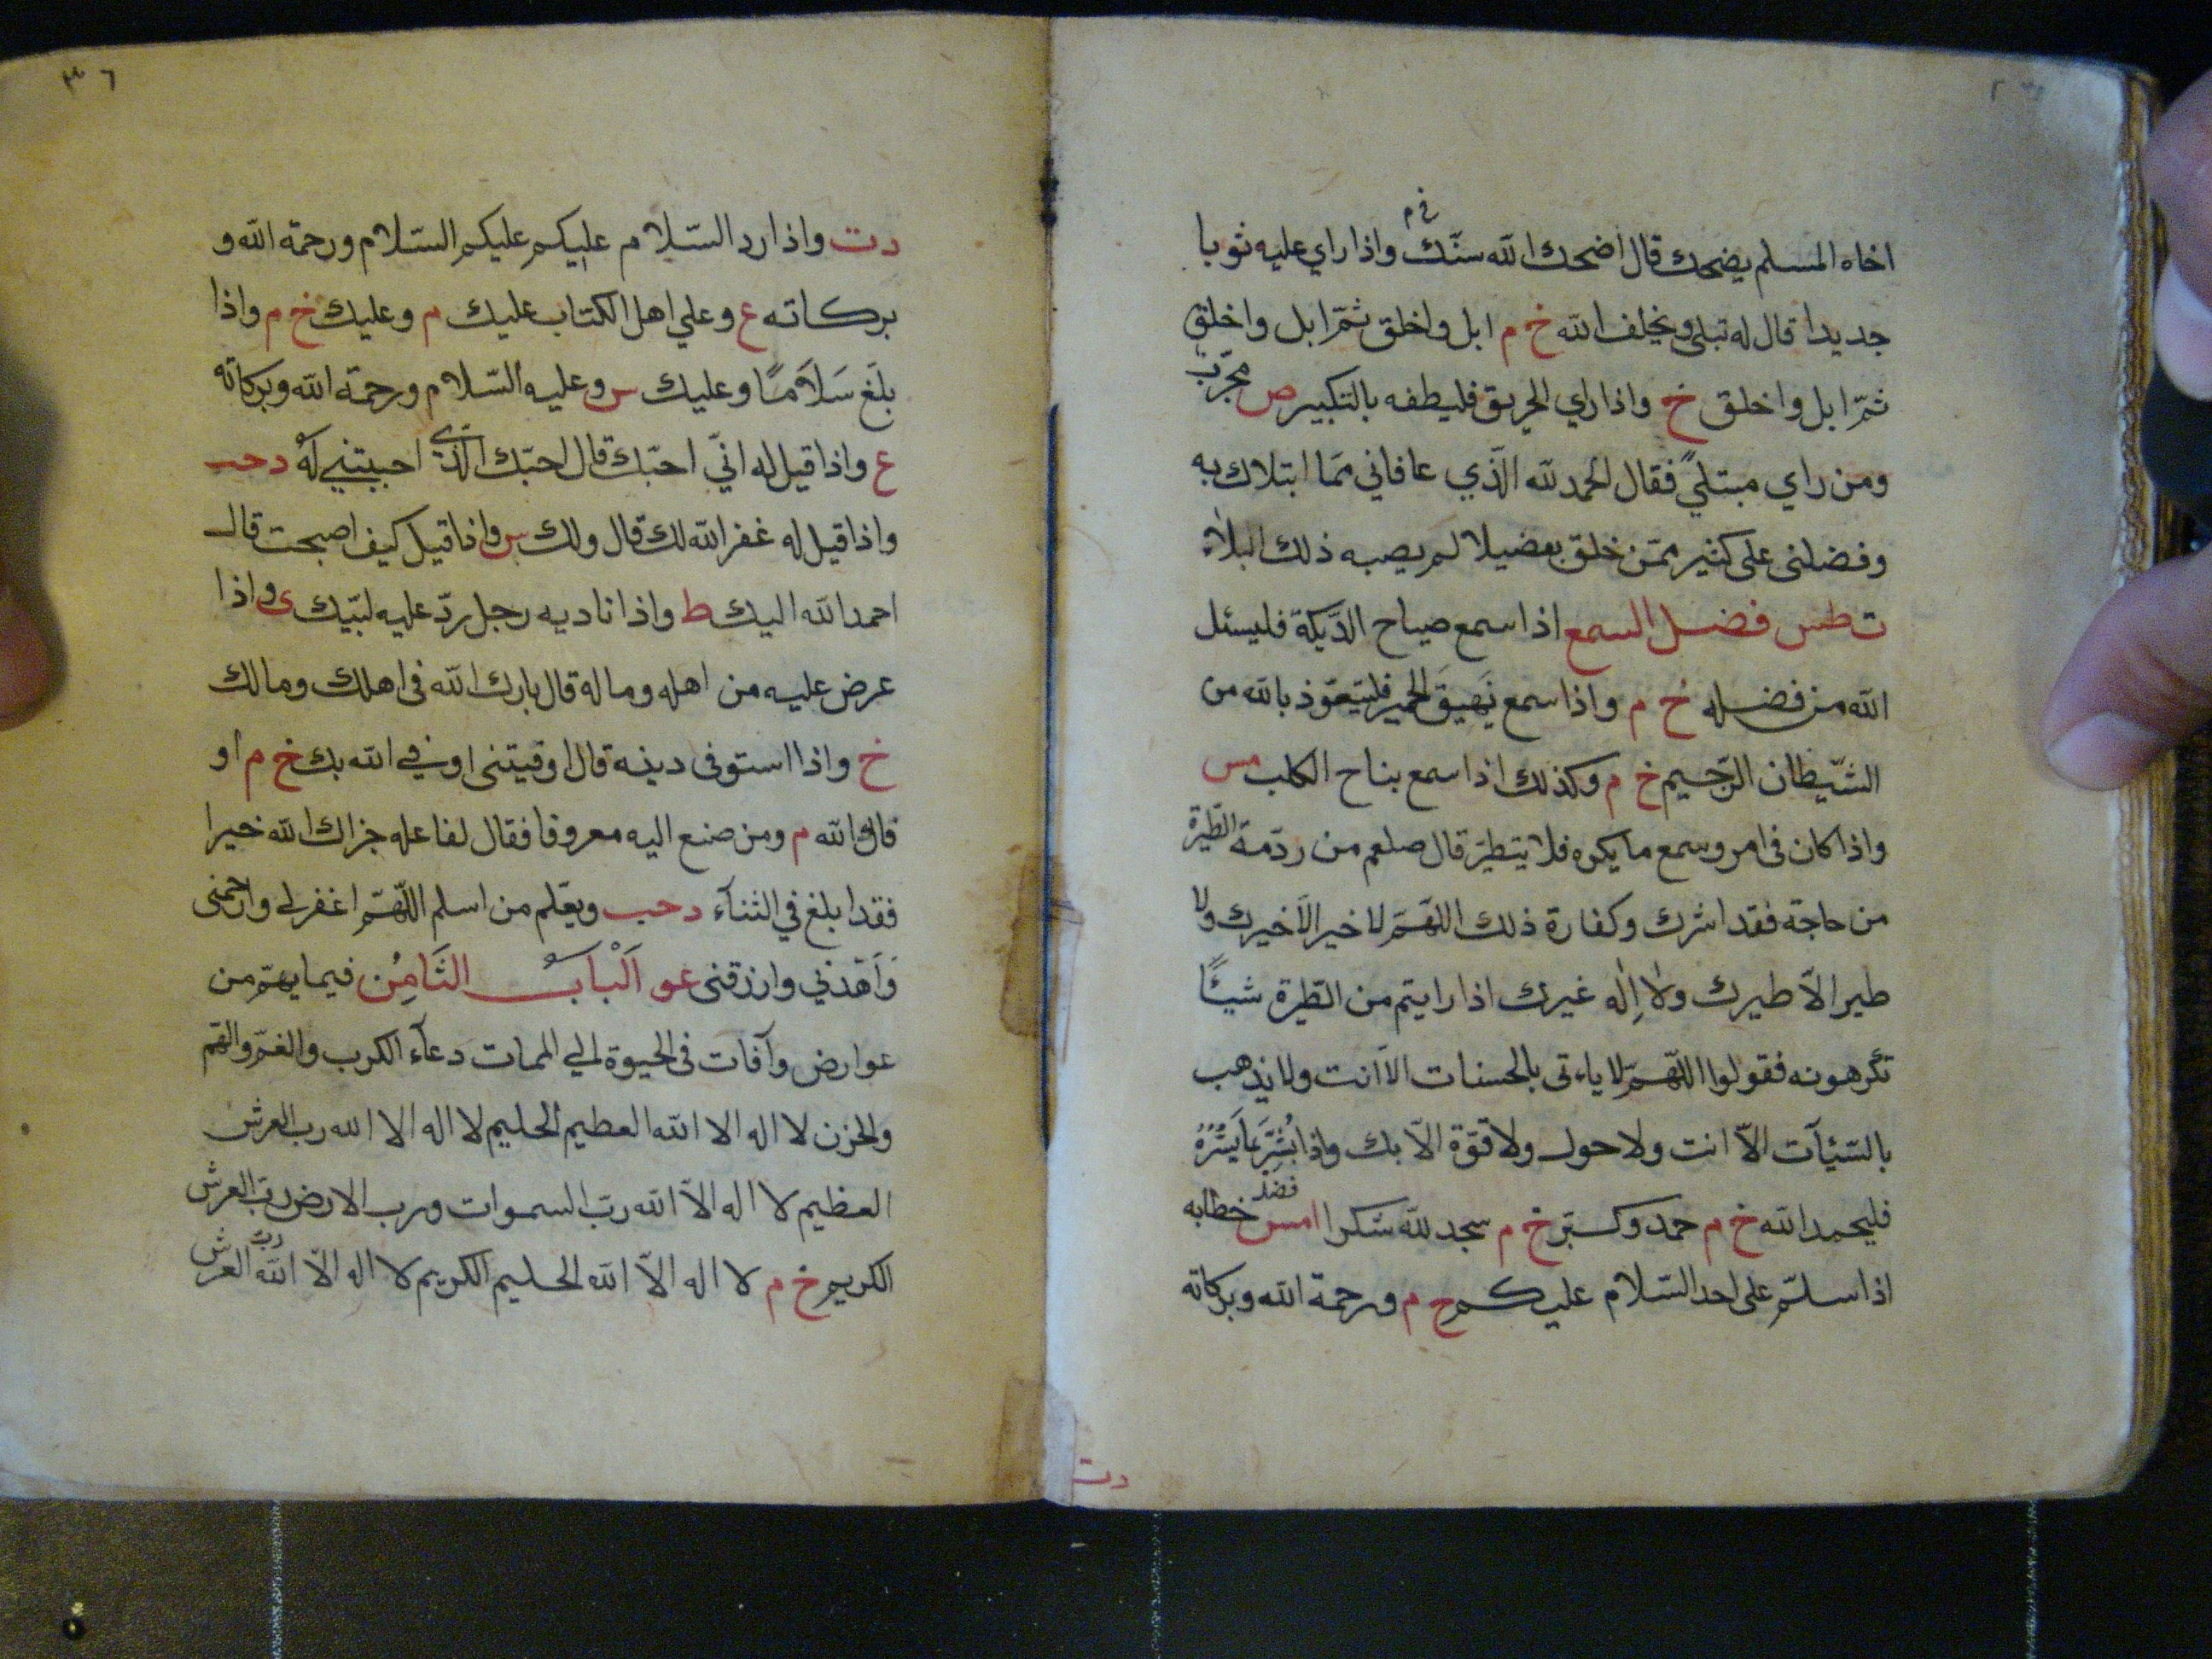 اخاه المسلم يضحك قال اضحك الله سنّك واذا راي عليه ثوبا
جديدا قال له تبلى ويخلف الله خ م ابل واخلق ثمّ ابل واخلق
ثمّ ابل واخلق خ واذا راي الحريق فليطفه بالتكبير ص مجرّب
ومن راي مبتليً فقال الحمد لله الّذي عافاني ممّا ابتلاك به
وفضلنى على كثير ممّن خلق تفضيلا لم يصبه ذلك البلاء
ت طس فضل السمع اذا سمع صياح الدّيكة فليسئل
الله من فضله خ م واذا سمع نَهيقَ الحمير فليتعوّذ بالله من
الشّيطان الرّجيم خ م وكذلك اذا سمع بناح الكلب مس
واذا كان فى امر وسمع ما يكره فلا يتطيرّ قال صلعم من ردّمة الطّيرة
من حاجة فقد اشرك وكفارة ذلك اللهمّ لا خير الّا خيرك ولا
طير الّا طيرك ولا اِله غيرك اذا رايتم من الطّيرة شيئًا
تكرهونه فقولوا اللّهمّ لا ياءتى بالحسنات الّا انت ولا يذهب
بالسّيئآت الّا انت ولا حول ولا قوّة الّا بك واذا بُشّرَ بما يَسُرّهُ
فليحمد الله خ م حمد وكبّر خ م سجد لله شكرا امس فضل خطابه
اذا سلّم على احد السّلام عليكم خ م ورحمة الله وبركاته
دت
٣٦
دت واذا رد السّلام عليكم عليكم السّلام ورحمة الله و
بركاته ع وعلي اهل الكتاب عليك م وعليك خ م واذا
بلّغ سَلَامًا وعليك س وعليه السّلام ورحمة الله وبركاته
ع واذا قيل له انّي احبّك قال احبّك الّذى احببتني لَهُ دحب
واذا قيل له غفر الله لك قال ولك س واذا قيل كيف اصبحت قال
احمد الله اليك ط واذا ناديه رجل ردّ عليه لبّيك ى واذا
عرض عليه من اهله وماله قال بارك الله فى اهلك ومالك
خ واذا استوفى دينه قال اوفيتنى اوفي الله بك خ م او
قاك الله م ومن صنع اليه معروفا فقال لفاعله جزاك الله خيرا
فقد ابلغ في الثنآء دحب ويعّلم من اسلم اللّهمّ اغفر لى وارحمنى
وَاَهْدني وارزقنى عو اَلْبَابُ الثَّامِنُ فيما يهمّ من
عوارض وآفات فى الحيوة الي الممات دعآء الكرب والغمّ والهّم
والحزن لا اله الا الله العظيم الحليم لا اله الا الله رب العرش
العظيم لا اله الّا الله ربّ السموات ورب الارض ربّ العرش
الكريم خ م لا اله الّا الله الحليم الكريم لا اله الّا الله ربّ العرش